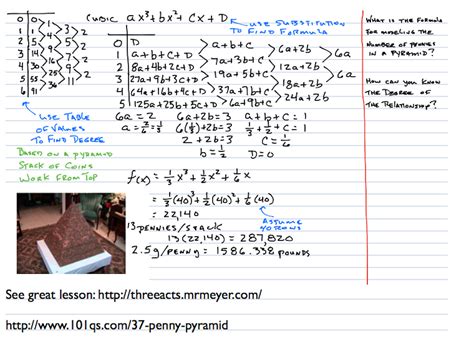 CUBIC ax³+bx²+Cx+D
USE SUBSTITUTION
TO FIND FORMULA
0 0
1 1
2 5
3 14
4 30
5 55
6 91
1
4
9
16
25
36
3
5
7
9
11
2
2
2
2
USE TABLE
OF VALUES
TO FIND DEGREE
0 D
1 a+b+c+D
2 8a+4b+2c+D
3 27a+9b+3c+D
4 64a+16b+4c+D
5 125a+25b+5c+D
a+b+c
7a+3b+c
19a+5b+c
37a+7b+c
61a+9b+c
6a+2b
12a+2b
18a+2b
24a+2b
6a
6a
6a=2
a=2/6=1/3
6a+2b=3
6(1/3)+2b=3
2+2b=3
b=1/2
a+b+c=1
1/3+1/2+c=1
c=1/6
D=0
BASED ON A PYRAMID
STACK OF COINS
WORK FROM TOP
f(x)=1/3x³+1/2x²+1/6x
=1/3(40)³+1/2(40)²+1/6(40)
=22,140
ASSUME
40 ROWS
13 PENNIES/STACK
13(22,140)=287,820
2.5g/PENNY=1586.338 POUNDS
WHAT IS THE FORMULA
FOR MODELING THE
NUMBER OF PENNIES
IN A PYRAMID?
HOW CAN YOU KNOW
THE DEGREE OF
THE RELATIONSHIP?
See great lesson: http://threeacts.mrmeyer.com/
http://www.101qs.com/37-penny-pyramid